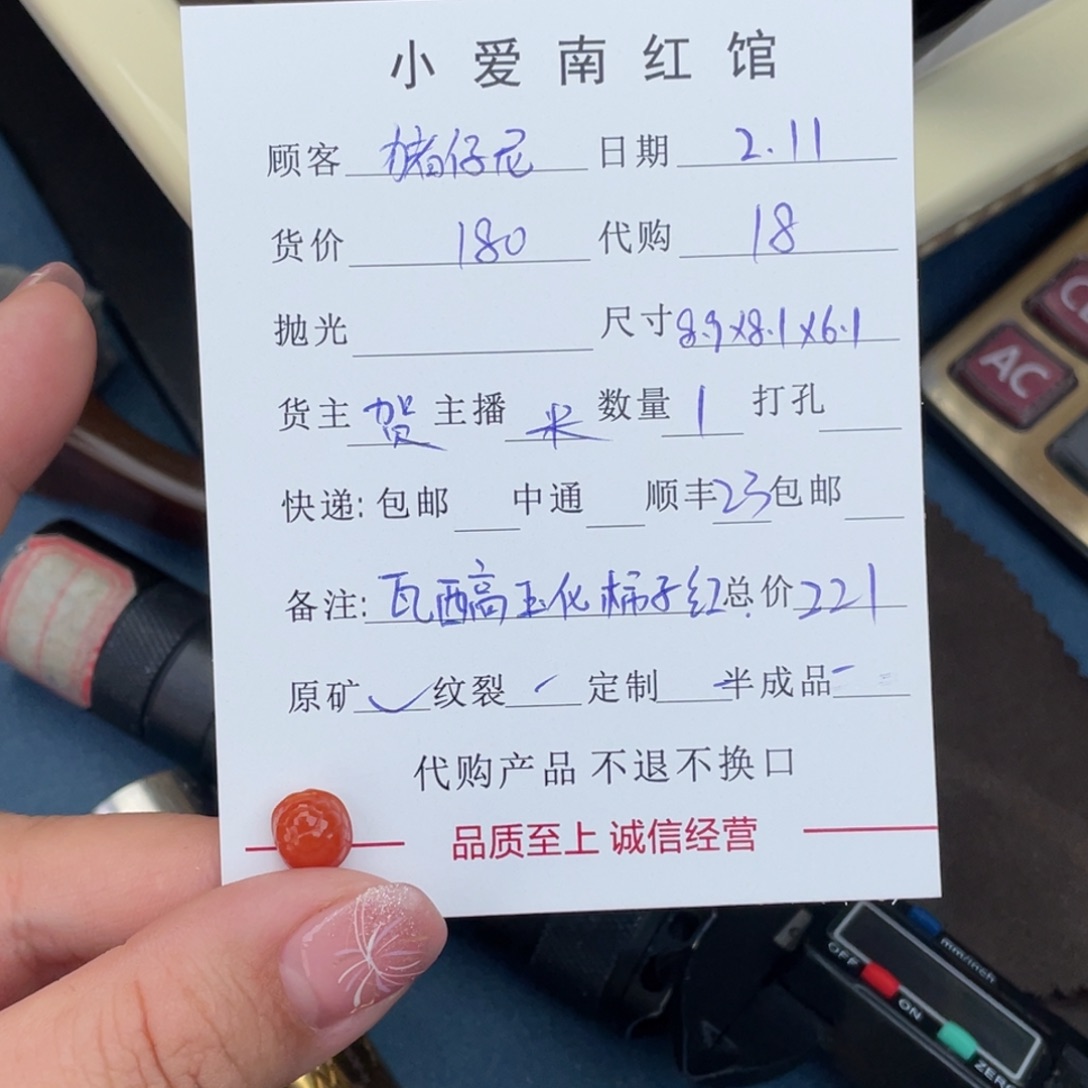 小爱南红馆
顾客 猪仔尼 日期 2.11
货价 180 代购 18
抛光 尺寸 8.9x8.1x6.1
货主 贺 主播 米 数量 1 打孔
快递: 包邮 中通 顺丰 23 包邮
备注: 瓦西高玉化柿子红 总价 221
原矿 ✓ 纹裂 ✓ 定制 半成品
代购产品 不退不换口
品质至上 诚信经营
AC
mm/inch
OFF
ON
ZER